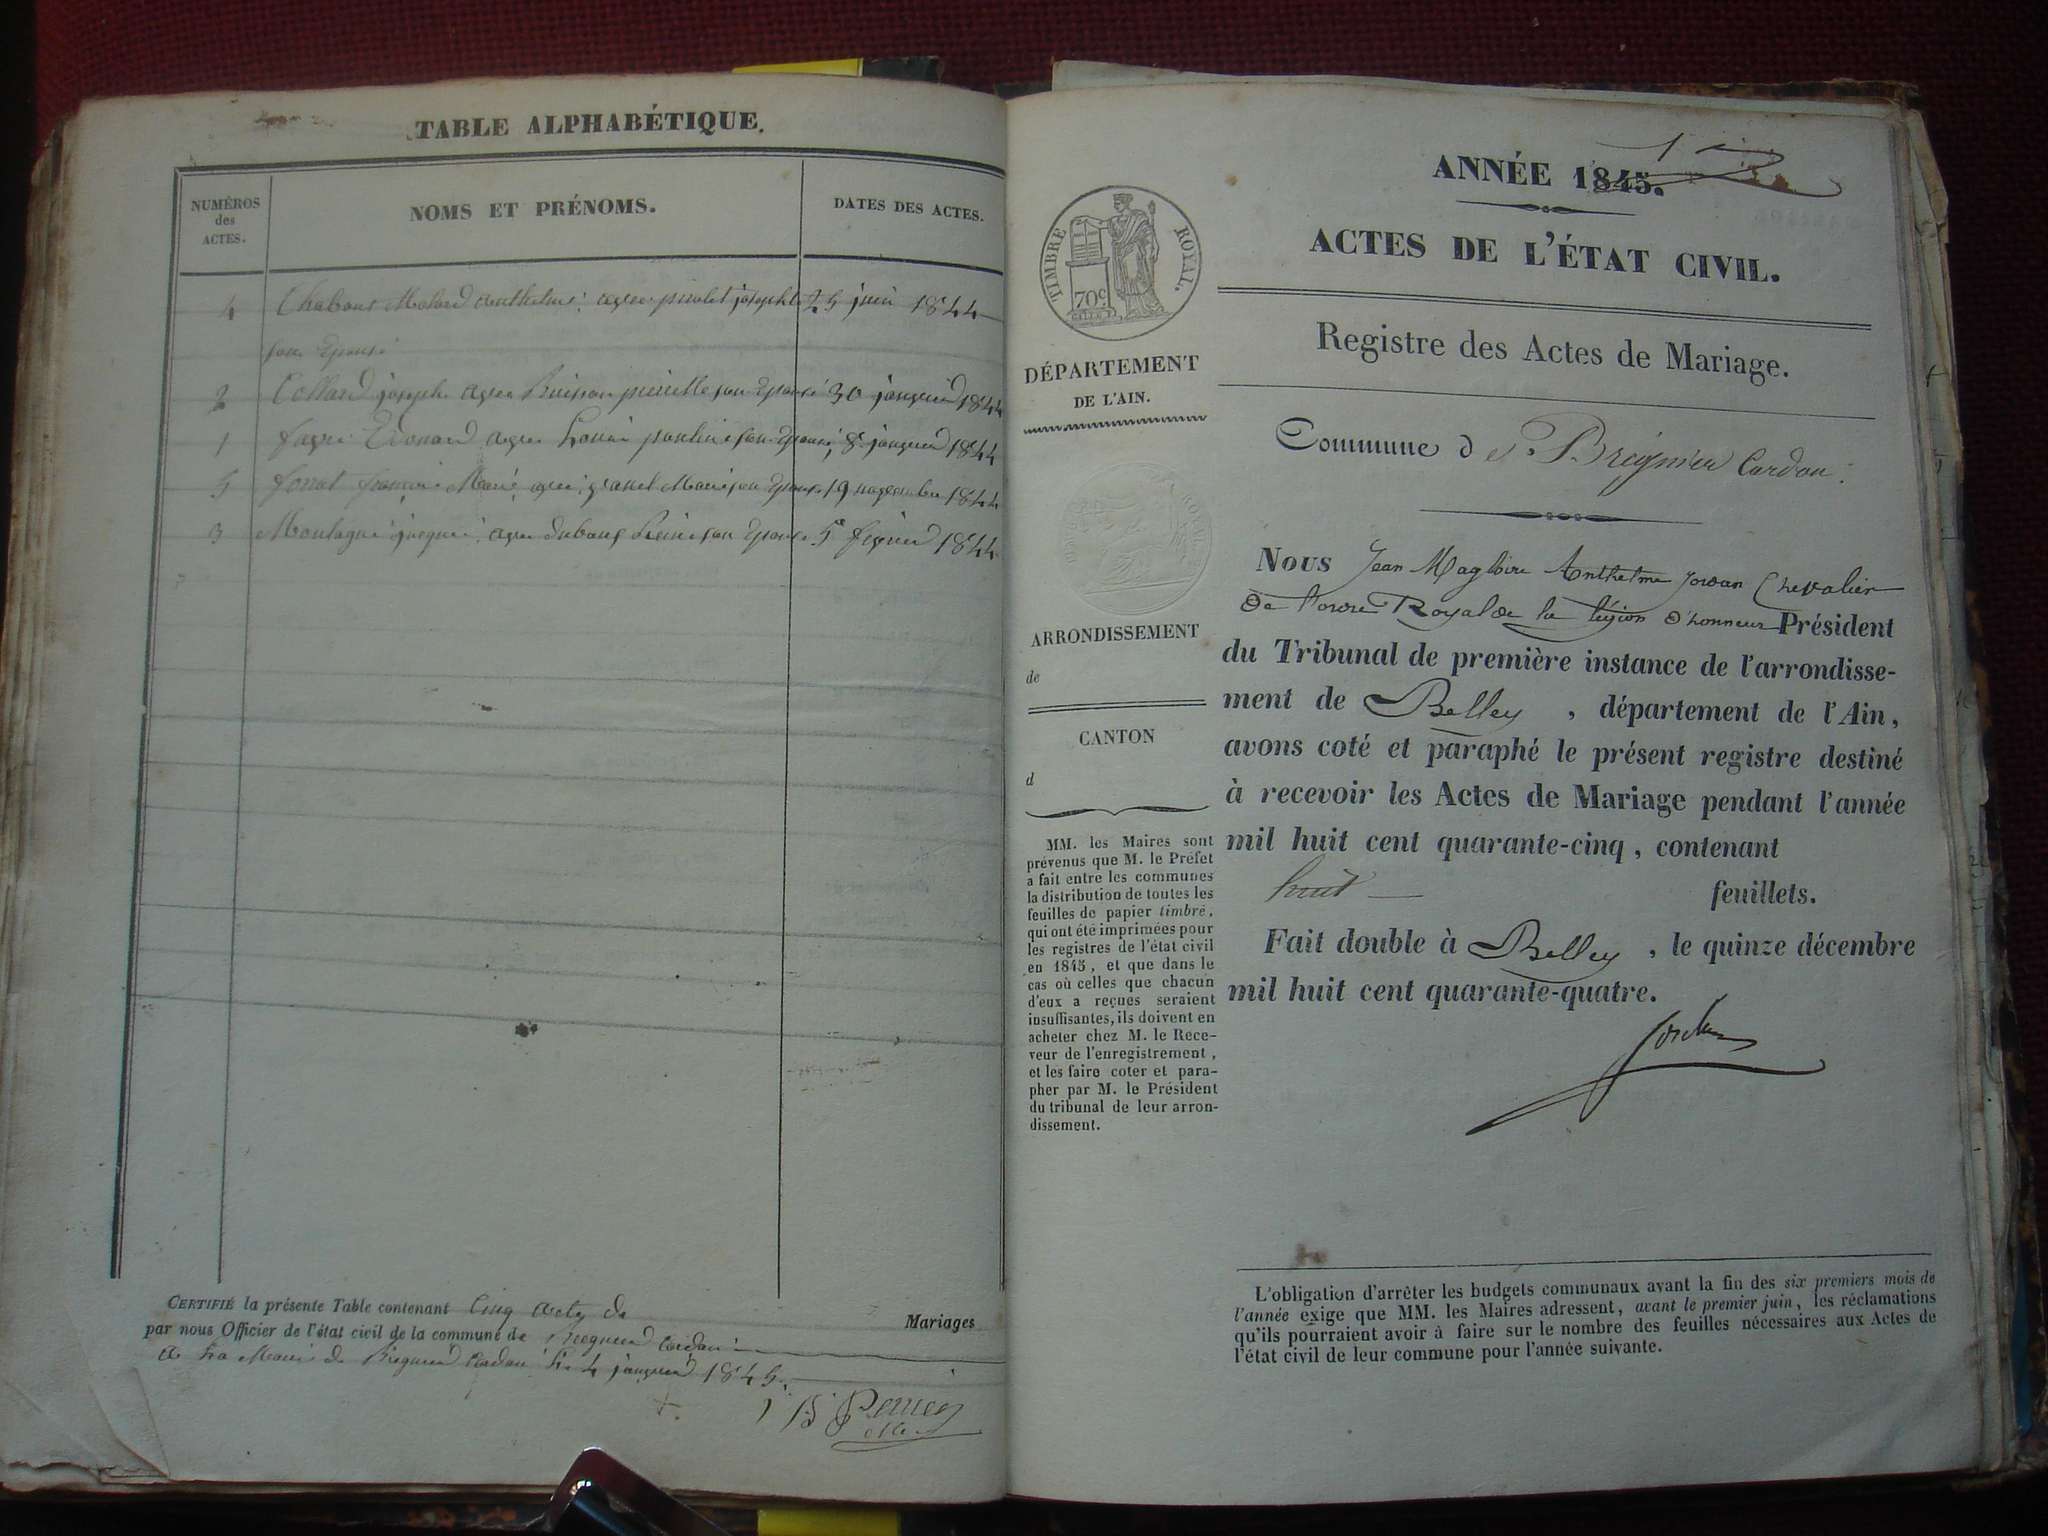 TABLE ALPHABÉTIQUE.
NUMÉROS
des
ACTES.
NOMS ET PRÉNOMS.
DATES DES ACTES.
4 Chaboux anthelme avec josephte 25 juin 1844
son Epouse
2 Collard joseph avec Buisson pierrette son Epouse 30 janvier 1844
1 Edouard avec son Epouse 8 janvier 1844
5 françois Marie avec Marie son Epouse 19 novembre 1844
3 Montagne avec son Epouse 5 février 1844
CERTIFIÉ la présente Table contenant Cinq actes de Mariages
par nous Officier de l'état civil de la commune de Bregnier Cordon
a la Mairie de Bregnier Cordon le 4 janvier 1845.
ANNÉE 1845.
ACTES DE L'ÉTAT CIVIL.
TIMBRE ROYAL.
70c
Registre des Actes de Mariage.
DÉPARTEMENT
DE L'AIN.
Commune de Breignier Cordon
ARRONDISSEMENT
de
CANTON
d
MM. les Maires sont
prévenus que M. le Préfet
a fait entre les communes
la distribution de toutes les
feuilles de papier timbré,
qui ont été imprimées pour
les registres de l'état civil
en 1845, et que dans le
cas où celles que chacun
d'eux a reçues seraient
insuffisantes, ils doivent en
acheter chez M. le Rece-
veur de l'enregistrement,
et les faire coter et para-
pher par M. le Président
du tribunal de leur arron-
dissement.
NOUS Jean Magloire Anthelme Jordan Chevalier
De l'ordre Royal de la légion D'honneur Président
du Tribunal de première instance de l'arrondisse-
ment de Belley, département de l'Ain,
avons coté et paraphé le présent registre destiné
à recevoir les Actes de Mariage pendant l'année
mil huit cent quarante-cinq, contenant
huit feuillets.
Fait double à Belley, le quinze décembre
mil huit cent quarante-quatre.
Jordan
L'obligation d'arrêter les budgets communaux avant la fin des six premiers mois de
l'année exige que MM. les Maires adressent, avant le premier juin, les réclamations
qu'ils pourraient avoir à faire sur le nombre des feuilles nécessaires aux Actes de
l'état civil de leur commune pour l'année suivante.